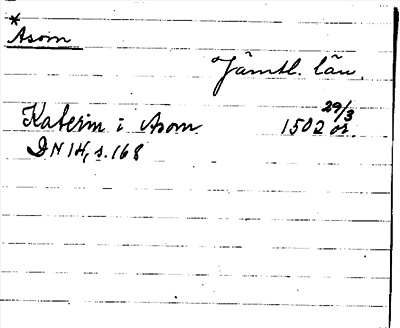 *
Åsom
Jämtl. län.
Katerin i Asom 1502 29/3 or.
DN 14, s. 168